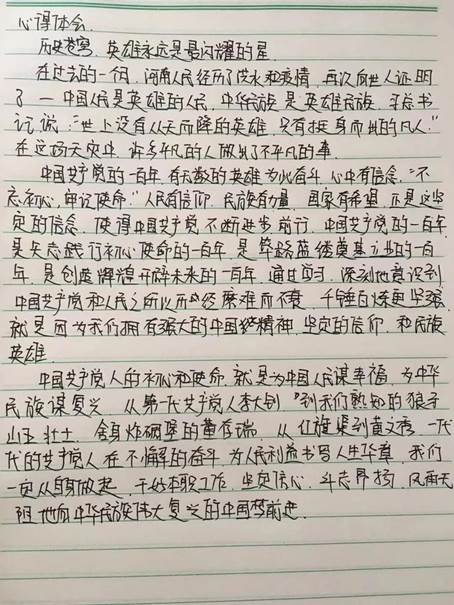 心得体会
历史苍穹，英雄永远是最闪耀的星
在过去的一个月，河南人民经历了洪水和疫情，再次向世人证明
了一中国人民是英雄的人民，中华民族是英雄民族，习总书
记说：“世上没有从天而降的英雄，只有挺身而出的凡人”
在这场天灾中，许多平凡的人做出了不平凡的事
中国共产党的一百年，有无数的英雄为此奋斗，心中有信念，“不
忘初心，牢记使命”，人民有信仰，民族有力量，国家有希望，正是这坚
定的信念，使得中国共产党不断进步前行，中国共产党的一百年
是矢志践行初心使命的一百年，是筚路蓝缕奠基立业的一百
年，是创造辉煌开辟未来的一百年，通过学习，深刻地意识到
中国共产党和人民之所以历经磨难而不衰，千锤百炼更坚强
就是因为我们拥有强大的中国精神，坚定的信仰，和民族
英雄
中国共产党人的初心和使命，就是为中国人民谋幸福，为中华
民族谋复兴，从第一代共产党人李大钊，到我们熟知的狼牙
山五壮士，舍身炸碉堡的董存瑞，从红旗渠到黄文秀，一代
代的共产党人在不懈的奋斗，为人民利益书写人生华章，我们
一定从自身做起，干好本职工作，坚定信心，斗志昂扬，风雨无
阻地向中华民族伟大复兴的中国梦前进